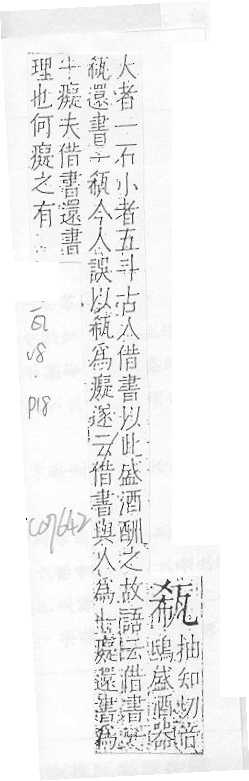 瓻
抽知切音
鴟盛酒器
大者一石小者五斗古人借書以此盛酒酬之故語云借書一
瓻還書一瓻今人誤以瓻為癡遂云借書與人為一癡還書為
一癡夫借書還書
理也何癡之有
瓦
V8.
P18
C07642